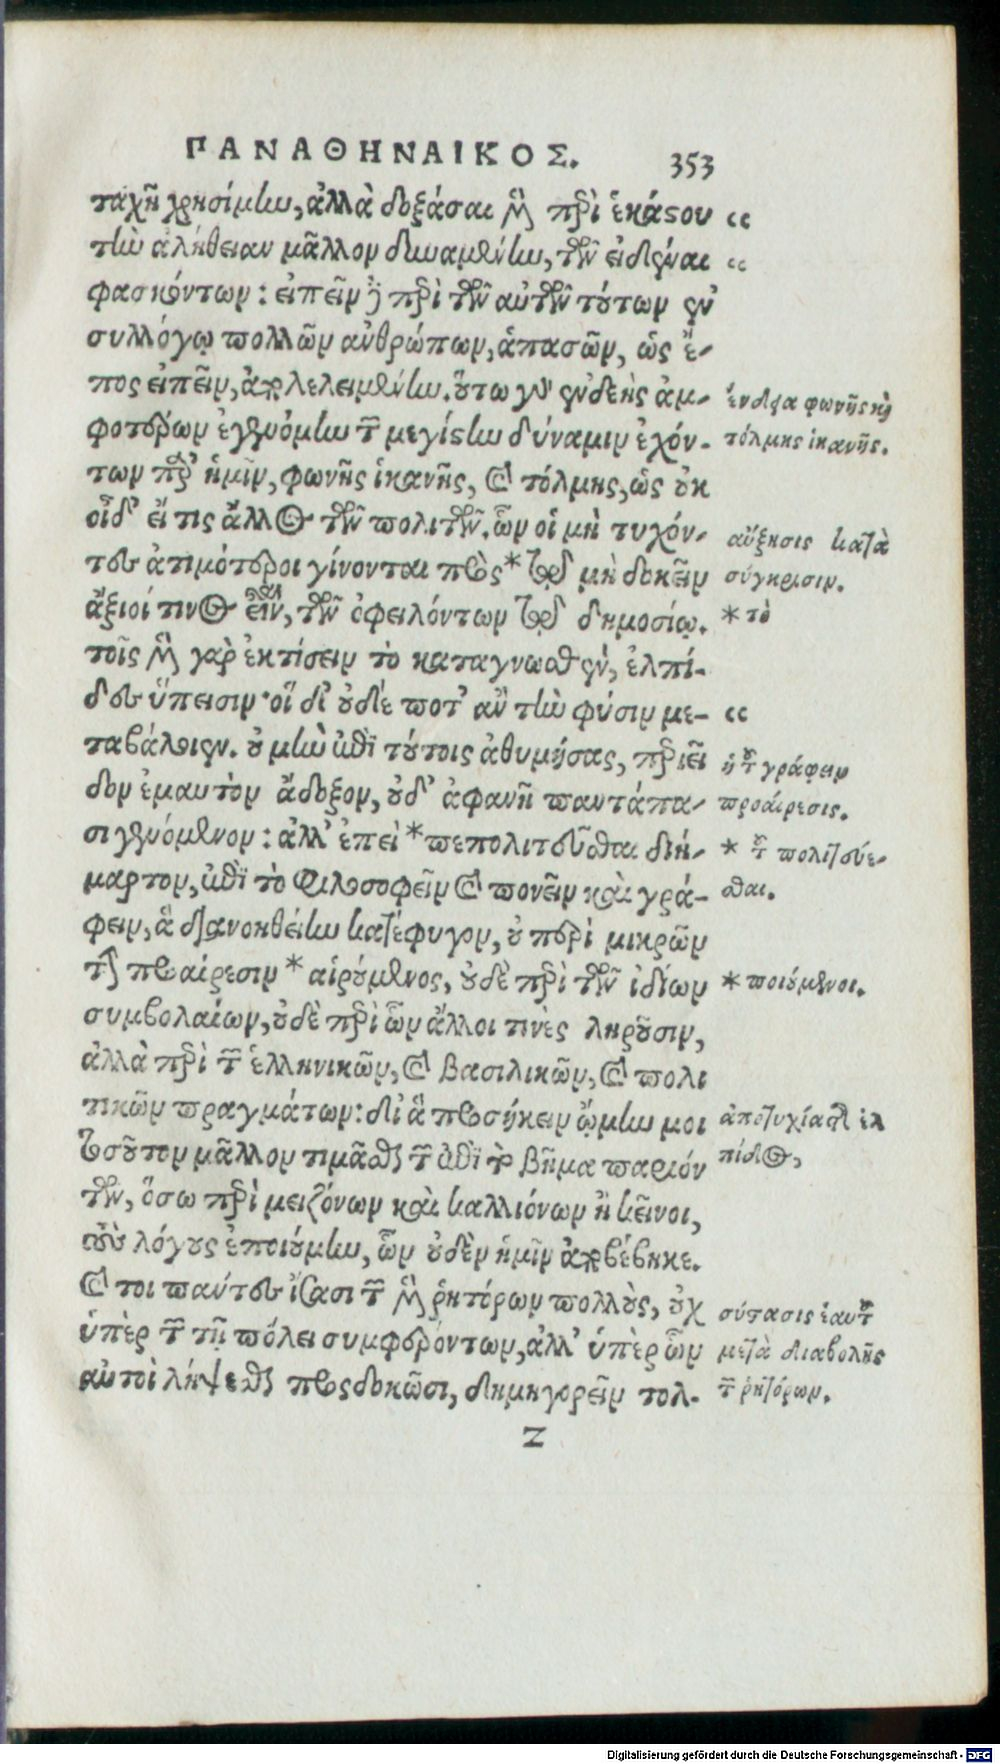 ΠΑΝΑΘΗΝΑΙΚΟΣ. 353
ταχῆ χρησίμην, ἀλλὰ δοξάσαι μὲν περὶ ἑκάστου
τὴν ἀλήθειαν μᾶλλον δυναμένην, τῶν εἰδέναι
φασκόντων: εἰπεῖν δὲ περὶ τῶν αὐτῶν τούτων ἐν
συλλόγῳ πολλῶν ἀνθρώπων, ἁπασῶν, ὡς ἔ-
πος εἰπεῖν, ἀπολελειμένην. οὕτω γὰρ ἐνδεὴς ἀμ-
φοτέρων ἐγενόμην τῶν μεγίστην δύναμιν ἐχόν-
των παρ' ἡμῖν, φωνῆς ἱκανῆς, καὶ τόλμης, ὡς οὐκ
οἶδ' εἴ τις ἄλλος τῶν πολιτῶν. ὧν οἱ μὴ τυχόν-
τες ἀτιμότεροι γίνονται πρὸς * τὸ μὴ δοκεῖν
ἄξιοί τινος εἶναι, τῶν ὀφειλόντων τῷ δημοσίῳ.
τοῖς μὲν γὰρ ἐκτίσειν τὸ καταγνωσθὲν, ἐλπί-
δες ὕπεισιν· οἵ δ' οὐδέ ποτ' ἂν τὴν φύσιν με-
ταβάλοιεν. οὐ μὴν ἐπὶ τούτοις ἀθυμήσας, περιεῖ
δον ἐμαυτὸν ἄδοξον, οὐδ' ἀφανῆ παντάπα-
σι γενόμενον: ἀλλ' ἐπεὶ * πεπολιτεῦσθαι διή-
μαρτον, ἐπὶ τὸ φιλοσοφεῖν καὶ πονεῖν καὶ γρά-
φειν, ἃ διανοηθείην κατέφυγον, οὐ περὶ μικρῶν
τὴν προαίρεσιν * αἱρούμενος, οὐδὲ περὶ τῶν ἰδίων
συμβολαίων, οὐδὲ περὶ ὧν ἄλλοι τινὲς ληροῦσιν,
ἀλλὰ περὶ τῶν ἑλληνικῶν, καὶ βασιλικῶν, καὶ πολι
τικῶν πραγμάτων: δι' ἃ προσήκειν ᾤμην μοι
τοσοῦτον μᾶλλον τιμᾶσθαι τῶν ἐπὶ τὸ βῆμα παριόν
των, ὅσῳ περὶ μειζόνων καὶ καλλιόνων ἢ κεῖνοι,
τοὺς λόγους ἐποιούμην, ὧν οὐδὲν ἡμῖν ἀποβέβηκε.
καί τοι πάντες ἴσασι τῶν μὲν ῥητόρων πολλοὺς, οὐχ
ὑπὲρ τῶν τῇ πόλει συμφερόντων, ἀλλ' ὑπὲρ ὧν
αὐτοὶ λήψεσθαι προςδοκῶσι, δημηγορεῖν τολ-
Z
ἔνδεια φωνῆς καὶ
τόλμης ἱκανῆς.
αὔξησις κατὰ
σύγκρισιν.
* τὸ
ἡ τοῦ γράφειν
προαίρεσις.
* τοῦ πολιτεύε-
σθαι.
* ποιούμενοι.
ἀποτυχία τῆς ἐλ
πίδος,
σύστασις ἑαυτοῦ
μετὰ διαβολῆς
τῶν ῥητόρων.
Digitalisierung gefördert durch die Deutsche Forschungsgemeinschaft - DFG